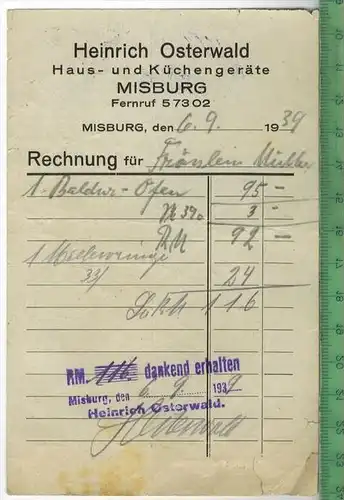 Heinrich Osterwald
Haus- und Küchengeräte
MISBURG
Fernruf 57302
MISBURG, den 6. 9. 1939
Rechnung für Fräulein
1 Baldur-Ofen 95 -
3 -
RM 92 -
1 24
116
RM. 116 dankend erhalten
Misburg, den 6. 9. 1939
Heinrich Osterwald.